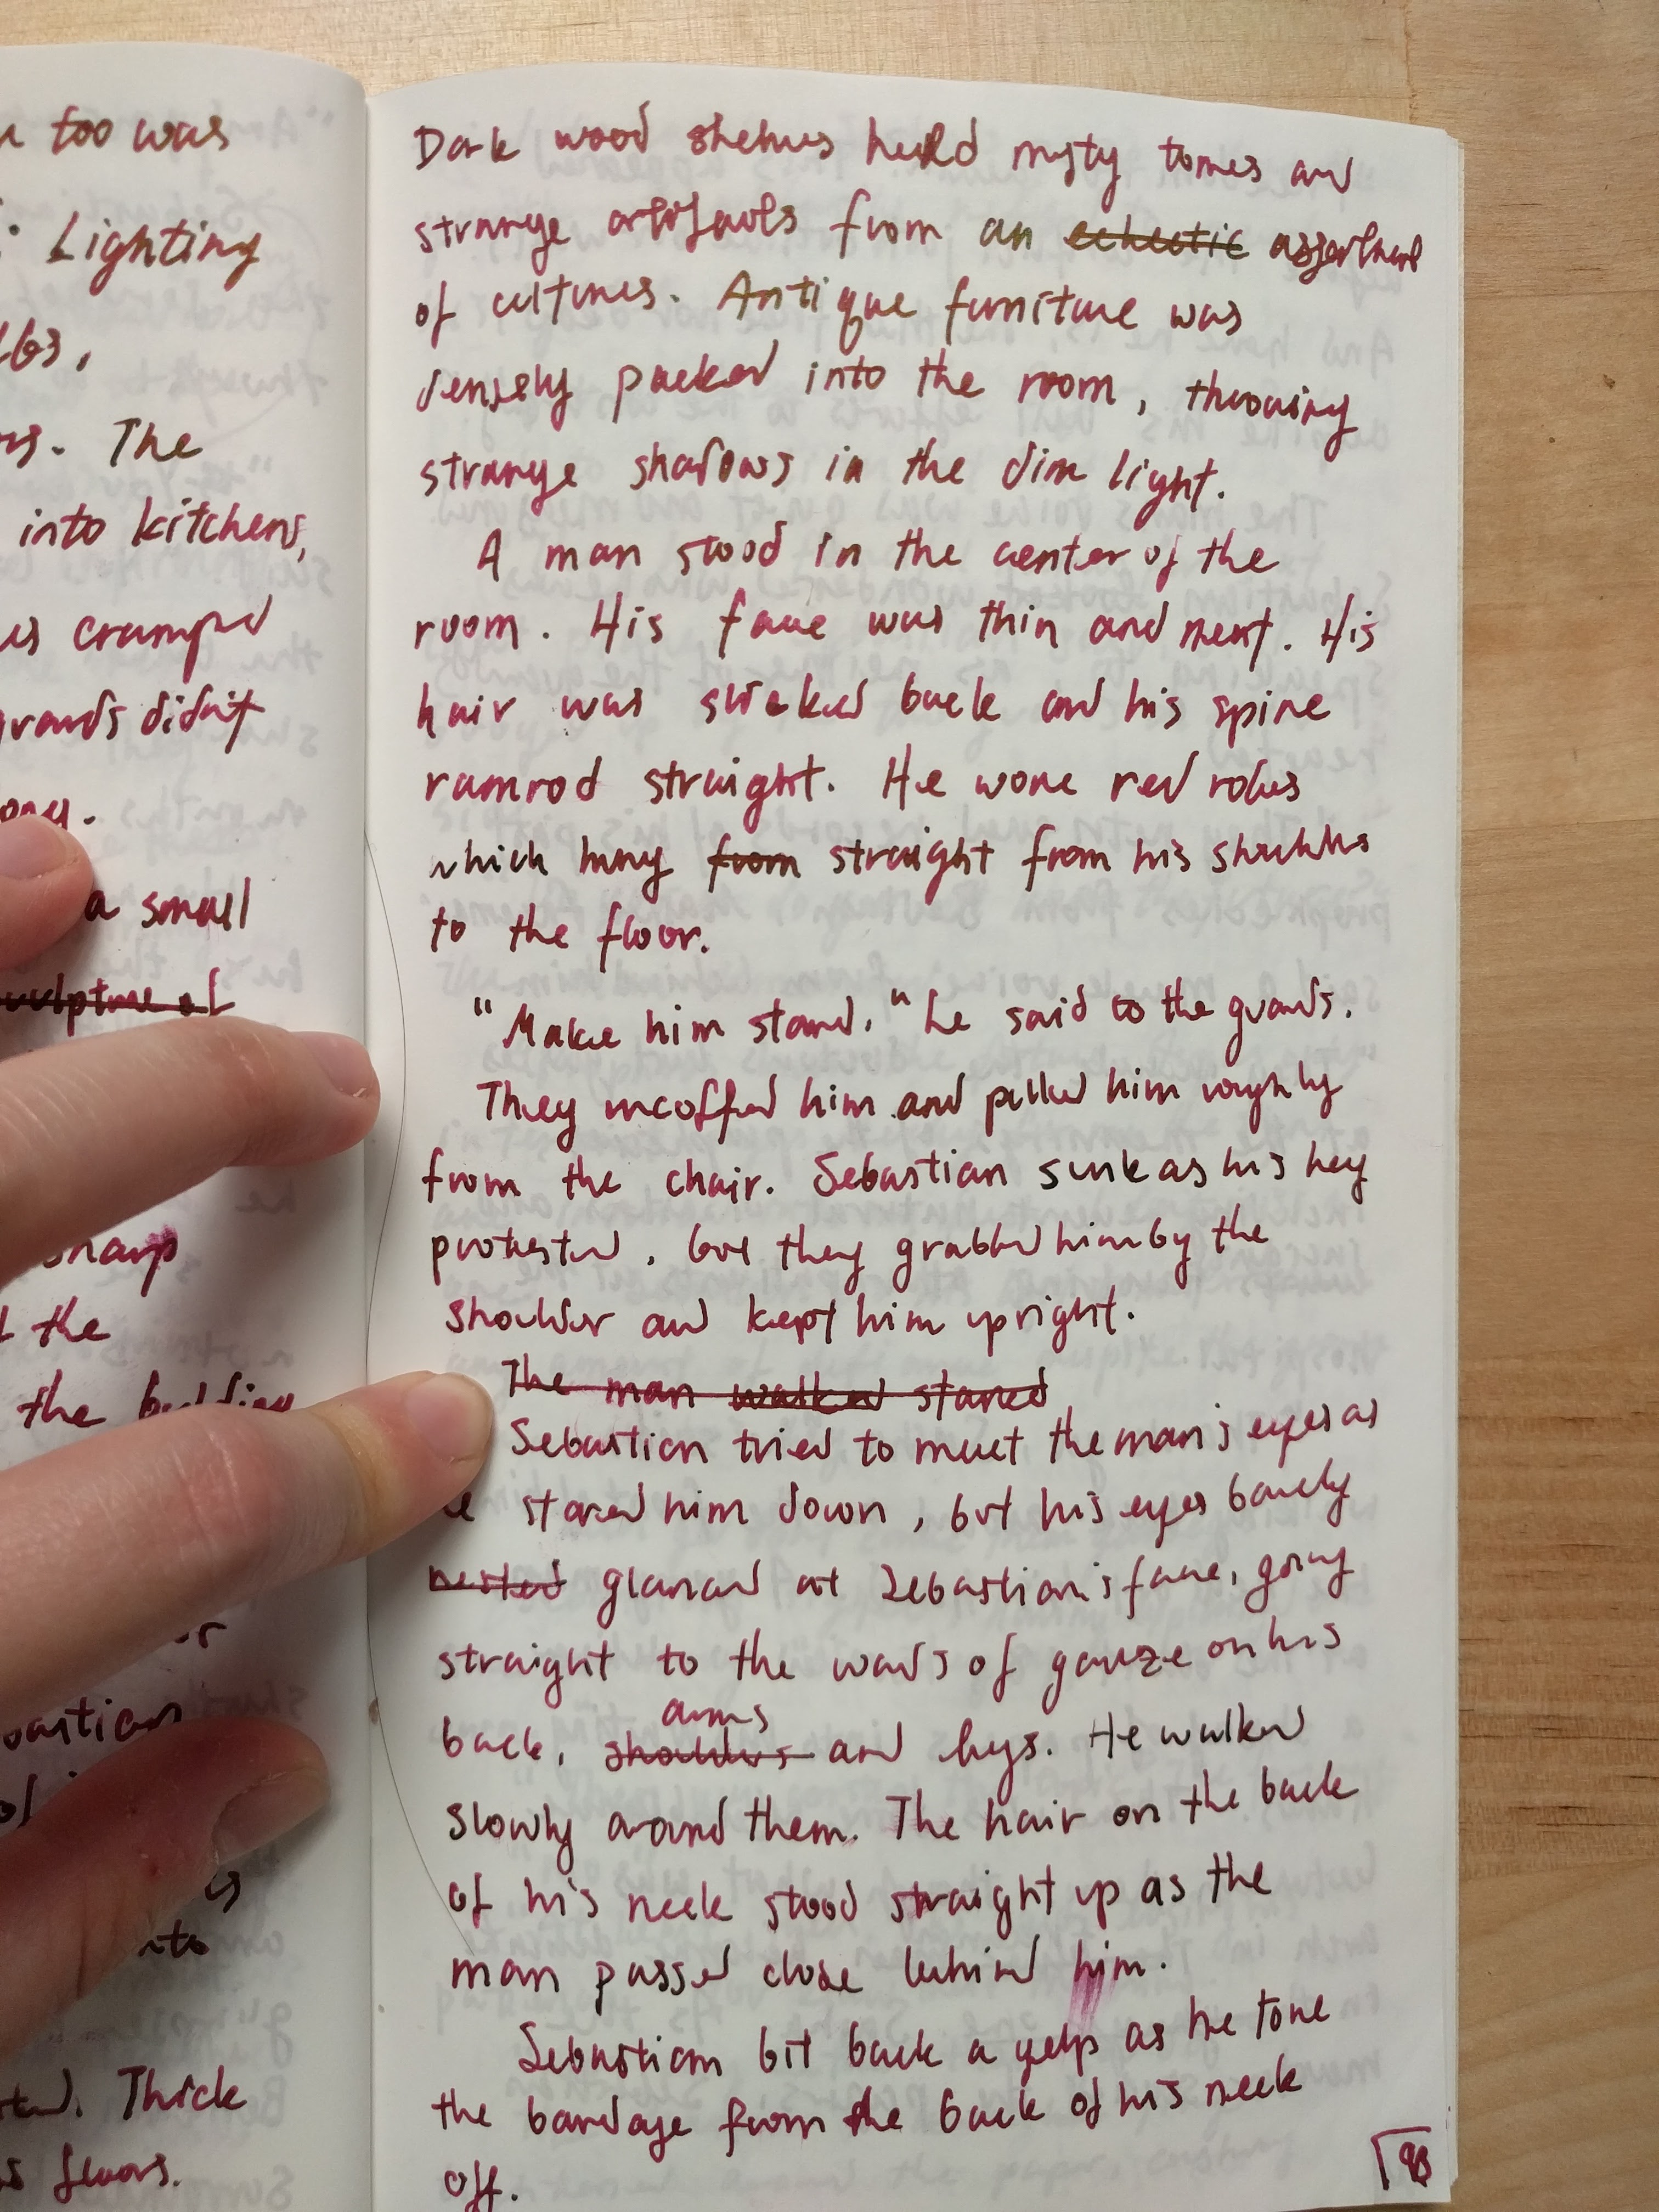 too was
Lighting
The
into kitchens,
cramped
guards didn't
a small
sculpture of
sharp
the
the building
or
Sebastian
into
Thick
floors.
Dark wood shelves held musty tomes and
strange artifacts from an eclectic assortment
of cultures. Antique furniture was
densely packed into the room, throwing
strange shadows in the dim light.
A man stood in the center of the
room. His face was thin and neat. His
hair was slicked back and his spine
ramrod straight. He wore red robes
which hung from straight from his shoulders
to the floor.
"Make him stand." he said to the guards.
They uncoffed him and pulled him roughly
from the chair. Sebastian sunk as his leg
protested, but they grabbed him by the
shoulder and kept him upright.
The man walked stared
Sebastian tried to meet the man's eyes as
he stared him down, but his eyes barely
rested glanced at Sebastian's face, going
straight to the wads of gauze on his
arms
back, shoulders and legs. He walked
slowly around them. The hair on the back
of his neck stood straight up as the
man passed close behind him.
Sebastian bit back a yelp as he tore
the bandage from the back of his neck
off.
98